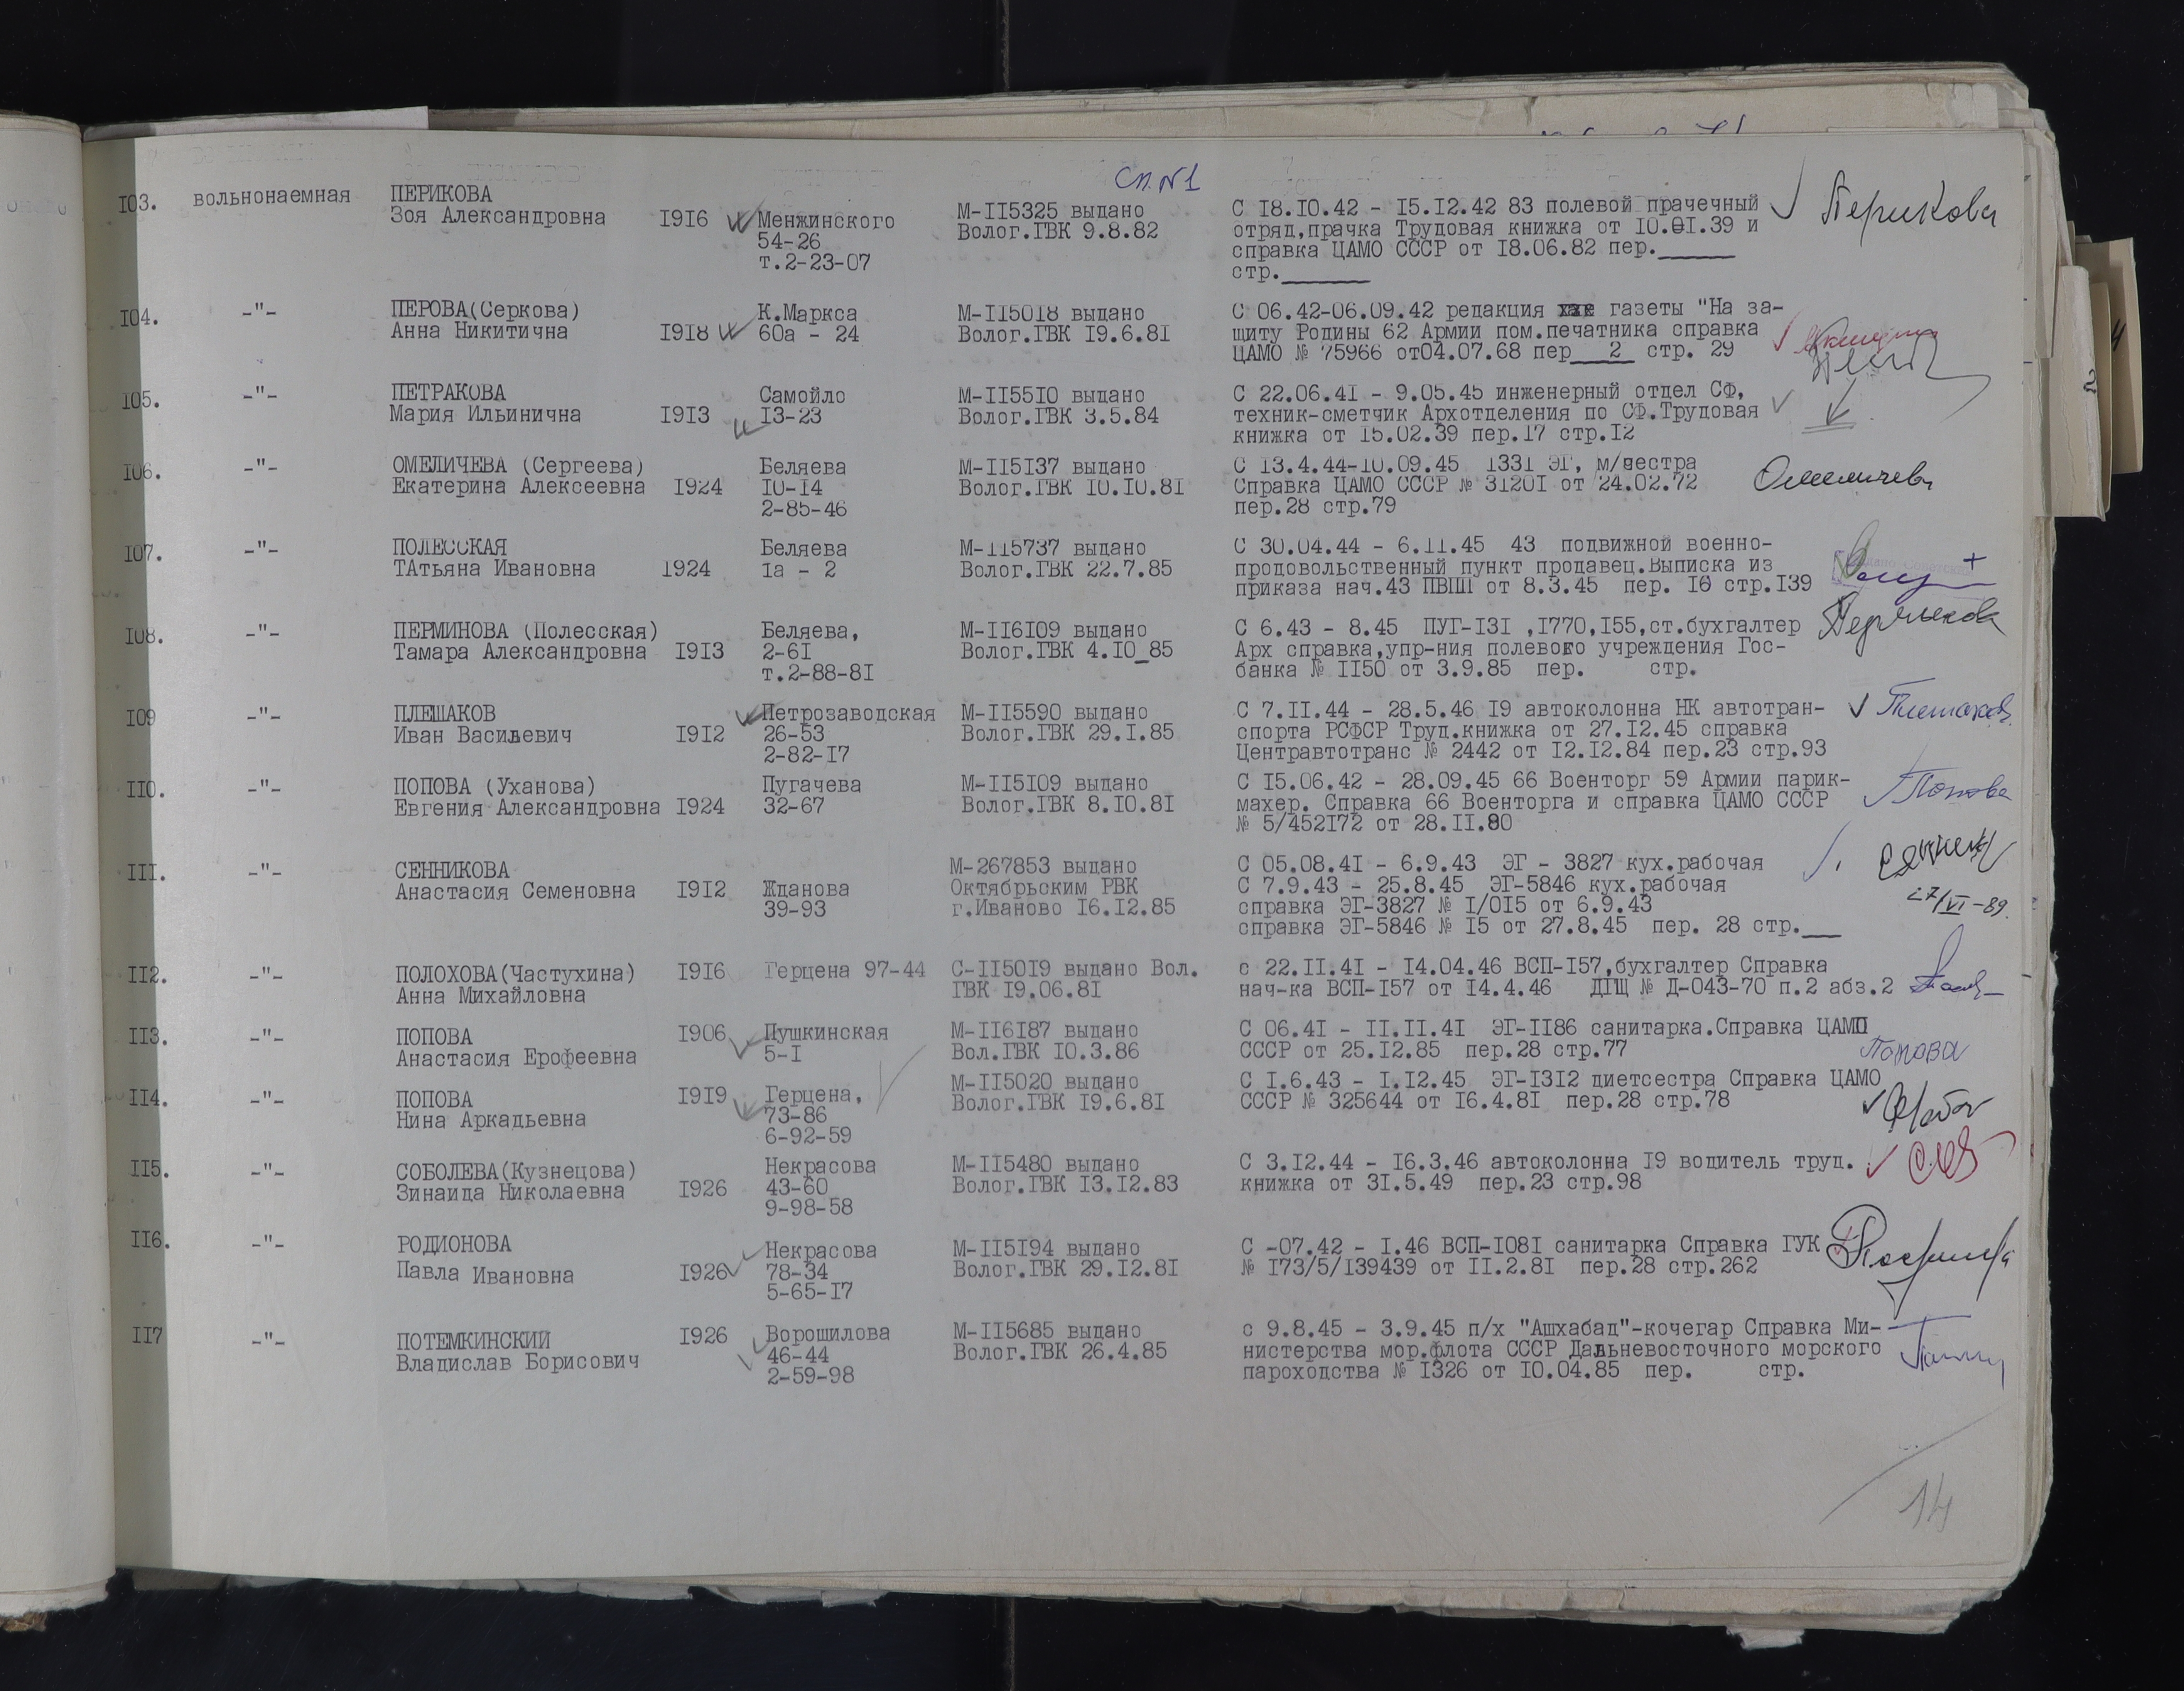 Сп.№1
103. вольнонаемная ПЕРИКОВА
Зоя Александровна 1916 Менжинского
54-26
т.2-23-07
М-115325 выдано
Волог.ГВК 9.8.82
С 18.10.42 - 15.12.42 83 полевой прачечный
отряд,прачка Трудовая книжка от 10.01.39 и
справка ЦАМО СССР от 18.06.82 пер._____
стр._____
Перикова
104. -"- ПЕРОВА(Серкова)
Анна Никитична 1918
К.Маркса
60а - 24
М-115018 выдано
Волог.ГВК 19.6.81
С 06.42-06.09.42 редакция газеты "На за-
щиту Родины 62 Армии пом.печатника справка
ЦАМО № 75966 от04.07.68 пер__2_ стр. 29
105. -"- ПЕТРАКОВА
Мария Ильинична 1913
Самойло
13-23
М-115510 выдано
Волог.ГВК 3.5.84
С 22.06.41 - 9.05.45 инженерный отдел СФ,
техник-сметчик Архотделения по СФ.Трудовая
книжка от 15.02.39 пер.17 стр.12
106. -"- ОМЕЛИЧЕВА (Сергеева)
Екатерина Алексеевна 1924
Беляева
10-14
2-85-46
М-115137 выдано
Волог.ГВК 10.10.81
С 13.4.44-10.09.45 1331 ЭГ, м/сестра
Справка ЦАМО СССР № 31201 от 24.02.72
пер.28 стр.79
Омеличева
107. -"- ПОЛЕССКАЯ
ТАтьяна Ивановна 1924
Беляева
1а - 2
М-115737 выдано
Волог.ГВК 22.7.85
С 30.04.44 - 6.11.45 43 подвижной военно-
продовольственный пункт продавец.Выписка из
приказа нач.43 ПВПП от 8.3.45 пер. 16 стр.139
108. -"- ПЕРМИНОВА (Полесская)
Тамара Александровна 1913
Беляева,
2-61
т.2-88-81
М-116109 выдано
Волог.ГВК 4.10_85
С 6.43 - 8.45 ПУГ-131 ,1770,155,ст.бухгалтер
Арх справка,упр-ния полевого учреждения Гос-
банка № 1150 от 3.9.85 пер. стр.
109 -"- ПЛЕШАКОВ
Иван Васильевич 1912
Петрозаводская
26-53
2-82-17
М-115590 выдано
Волог.ГВК 29.1.85
С 7.11.44 - 28.5.46 19 автоколонна НК автотран-
спорта РСФСР Труд.книжка от 27.12.45 справка
Центравтотранс № 2442 от 12.12.84 пер.23 стр.93
Плешаков
110. -"- ПОПОВА (Уханова)
Евгения Александровна 1924
Пугачева
32-67
М-115109 выдано
Волог.ГВК 8.10.81
С 15.06.42 - 28.09.45 66 Военторг 59 Армии парик-
махер. Справка 66 Военторга и справка ЦАМО СССР
№ 5/452172 от 28.11.80
Попова
111. -"- СЕННИКОВА
Анастасия Семеновна 1912
Жданова
39-93
М-267853 выдано
Октябрьским РВК
г.Иваново 16.12.85
С 05.08.41 - 6.9.43 ЭГ - 3827 кух.рабочая
С 7.9.43 - 25.8.45 ЭГ-5846 кух.рабочая
справка ЭГ-3827 № 1/015 от 6.9.43
справка ЭГ-5846 № 15 от 27.8.45 пер. 28 стр.___
27/VI-89.
112. -"- ПОЛОХОВА(Частухина) 1916 Герцена 97-44
Анна Михайловна
С-115019 выдано Вол.
ГВК 19.06.81
с 22.11.41 - 14.04.46 ВСП-157,бухгалтер Справка
нач-ка ВСП-157 от 14.4.46 ДГЩ № Д-043-70 п.2 абз.2
113. -"- ПОПОВА 1906 Пушкинская
Анастасия Ерофеевна 5-1
М-116187 выдано
Вол.ГВК 10.3.86
С 06.41 - 11.11.41 ЭГ-1186 санитарка.Справка ЦАМО
СССР от 25.12.85 пер.28 стр.77
Попова
114. -"- ПОПОВА 1919 Герцена,
Нина Аркадьевна 73-86
6-92-59
М-115020 выдано
Волог.ГВК 19.6.81
С 1.6.43 - 1.12.45 ЭГ-1312 диетсестра Справка ЦАМО
СССР № 325644 от 16.4.81 пер.28 стр.78
115. -"- СОБОЛЕВА(Кузнецова)
Зинаида Николаевна 1926
Некрасова
43-60
9-98-58
М-115480 выдано
Волог.ГВК 13.12.83
С 3.12.44 - 16.3.46 автоколонна 19 водитель труд.
книжка от 31.5.49 пер.23 стр.98
116. -"- РОДИОНОВА
Павла Ивановна 1926
Некрасова
78-34
5-65-17
М-115194 выдано
Волог.ГВК 29.12.81
С -07.42 - 1.46 ВСП-1081 санитарка Справка ГУК
№ 173/5/139439 от 11.2.81 пер.28 стр.262
117 -"- ПОТЕМКИНСКИЙ 1926
Владислав Борисович
Ворошилова
46-44
2-59-98
М-115685 выдано
Волог.ГВК 26.4.85
с 9.8.45 - 3.9.45 п/х "Ашхабад"-кочегар Справка Ми-
нистерства мор.флота СССР Дальневосточного морского
пароходства № 1326 от 10.04.85 пер. стр.
14